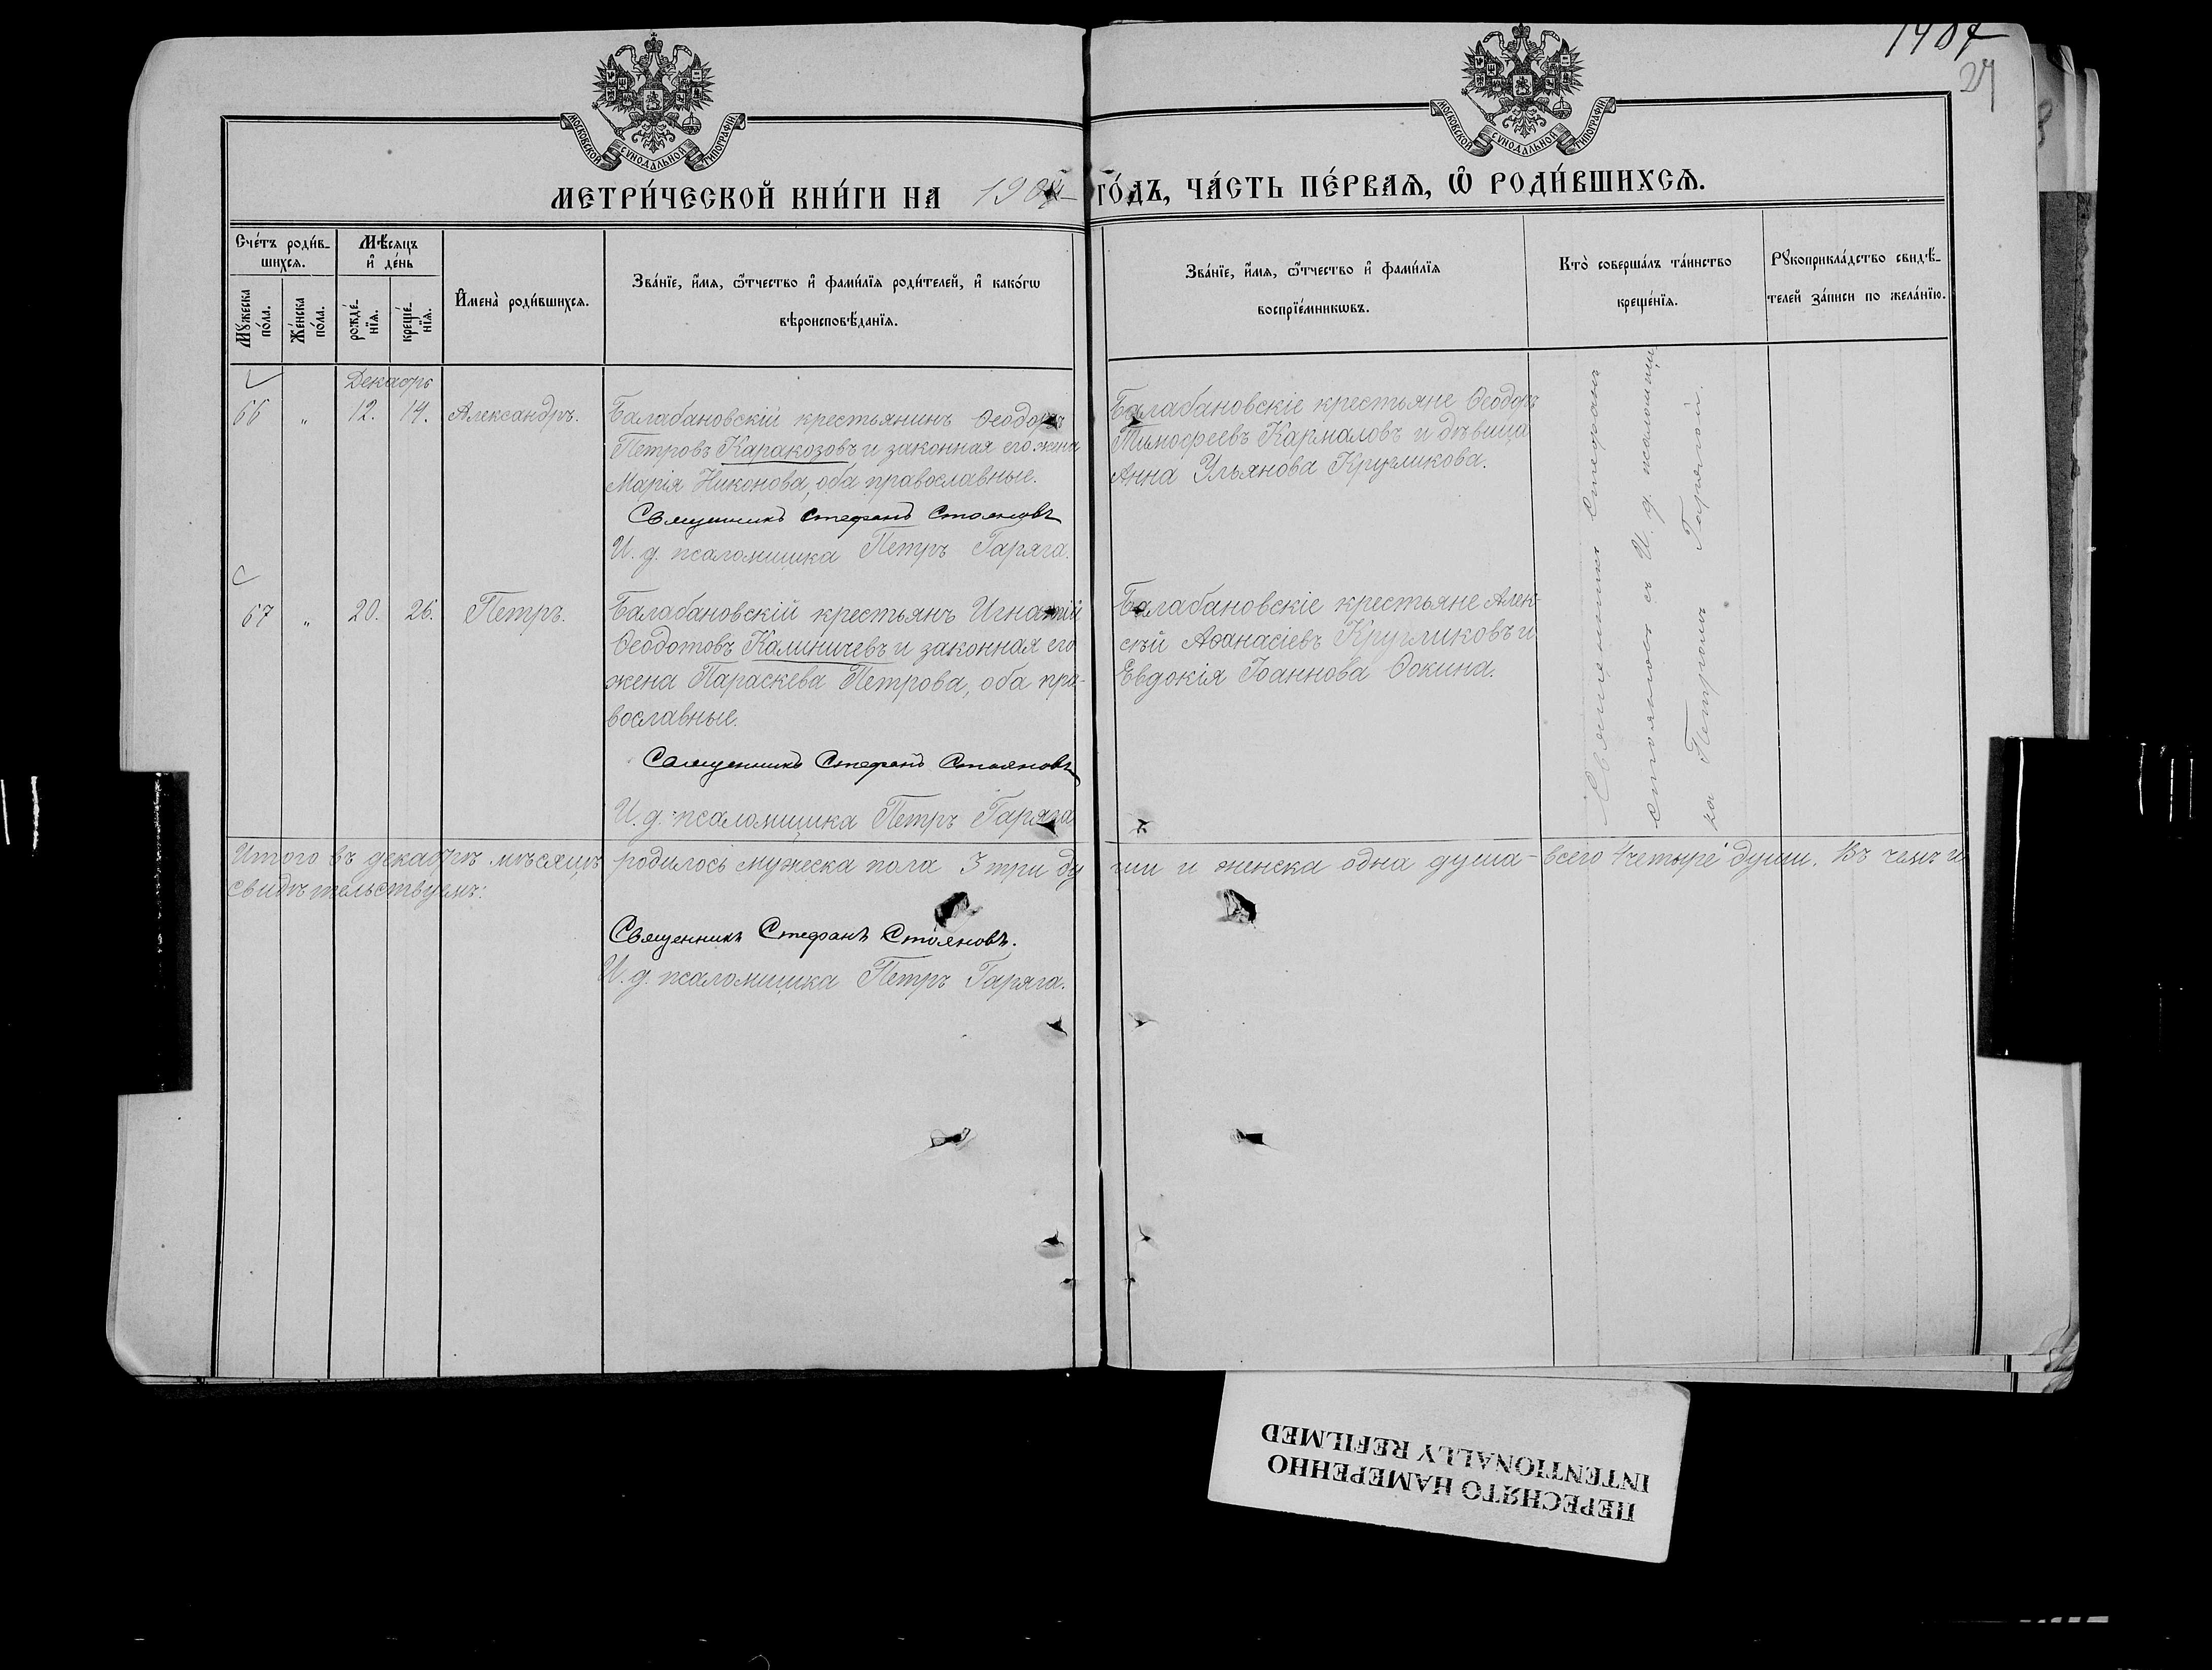 1904
27
МОСКОВСКОЙ СѴНОДАЛЬНОЙ ТИПОГРАФІИ
МОСКОВСКОЙ СѴНОДАЛЬНОЙ ТИПОГРАФІИ
МЕТРИ́ЧЕСКОЙ КНИ́ГИ НА 1904 ГО́ДЪ, ЧА́СТЬ ПЕ́РВАѦ, Ѽ РОДИ́ВШИХСѦ.
Сче́тъ роди́в-
шихсѧ.
Мѣ́сѧцъ
и҆ де́нь
Мꙋ́жеска
по́ла.
Же́нска
по́ла.
рожде́-
нїѧ.
креще́-
нїѧ.
И҆мена̀ роди́вшихсѧ.
Зва́нїе, и҆́мѧ, ѻ҆́тчество и҆ фами́лїѧ роди́телей, и҆ како́гѡ
вѣроисповѣ́данїѧ.
Зва́нїе, и҆́мѧ, ѻ҆́тчество и҆ фами́лїѧ
воспрїе́мникѡвъ.
Кто̀ соверша́лъ та́инство
креще́нїѧ.
Рꙋкоприкла́дство свидѣ́-
телей за́писи по жела́нїю.
Декабрь
66 " 12. 14. Александръ.
Балабановскій крестьянинъ Ѳеодоръ
Петровъ Каракозовъ и законная его жена
Марія Никонова, оба православные.
Священникъ Стефанъ Стояновъ
И. д. псаломщика Петръ Гаряга.
Балабановскіе крестьяне Ѳеодоръ
Тимофеевъ Кармаловъ и дѣвица
Анна Ульянова Кругликова.
67 " 20. 26. Петръ.
Балабановскій крестьянъ Игнатій
Ѳеодотовъ Калиничевъ и законная его
жена Параскева Петрова, оба пра-
вославные.
Священникъ Стефанъ Стояновъ
И. д. псаломщика Петръ Гаряга
Балабановскіе крестьяне Алек-
сѣй Аѳанасіевъ Кругликовъ и
Евдокія Іоаннова Ѳокина.
Священникъ Стефанъ
Стояновъ съ И. д. псаломщи-
ка Петромъ Гарягой.
Итого въ декабрѣ мѣсяцѣ родилось мужеска пола 3 три ду ши и женска одна душа - всего 4 четыре души. Въ чемъ и
свидѣтельствуемъ:
Священникъ Стефанъ Стояновъ.
И. д. псаломщика Петръ Гаряга.
ПЕРЕСНЯТО НАМЕРЕННО
INTENTIONALLY REFILMED